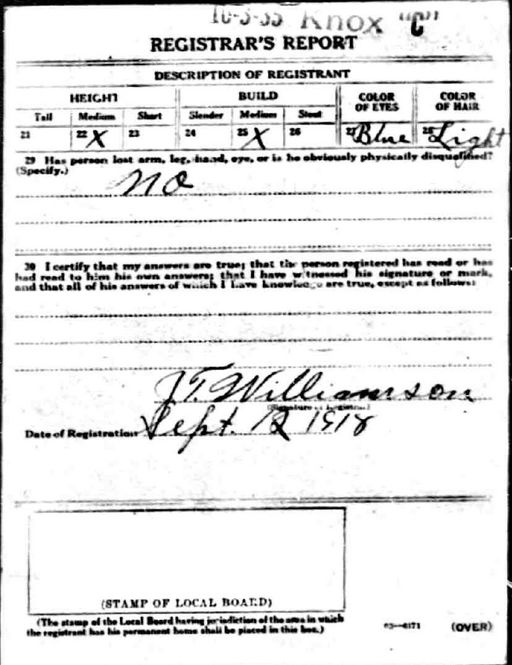 10-3-35 Knox "C"
REGISTRAR'S REPORT
DESCRIPTION OF REGISTRANT
HEIGHT BUILD COLOR OF EYES COLOR OF HAIR
Tall Medium Short Slender Medium Stout
21 22 X 23 24 25 X 26 27 Blue 28 Light
29 Has person lost arm, leg, hand, eye, or is he obviously physically disqualified?
(Specify.)
no
30 I certify that my answers are true; that the person registered has read or has
had read to him his own answers; that I have witnessed his signature or mark,
and that all of his answers of which I have knowledge are true, except as follows:
J.T. Williamson
(Signature of Registrar)
Date of Registration Sept. 12 1918
(STAMP OF LOCAL BOARD)
(The stamp of the Local Board having jurisdiction of the area in which
the registrant has his permanent home shall be placed in this box.)
03—6171 (OVER)